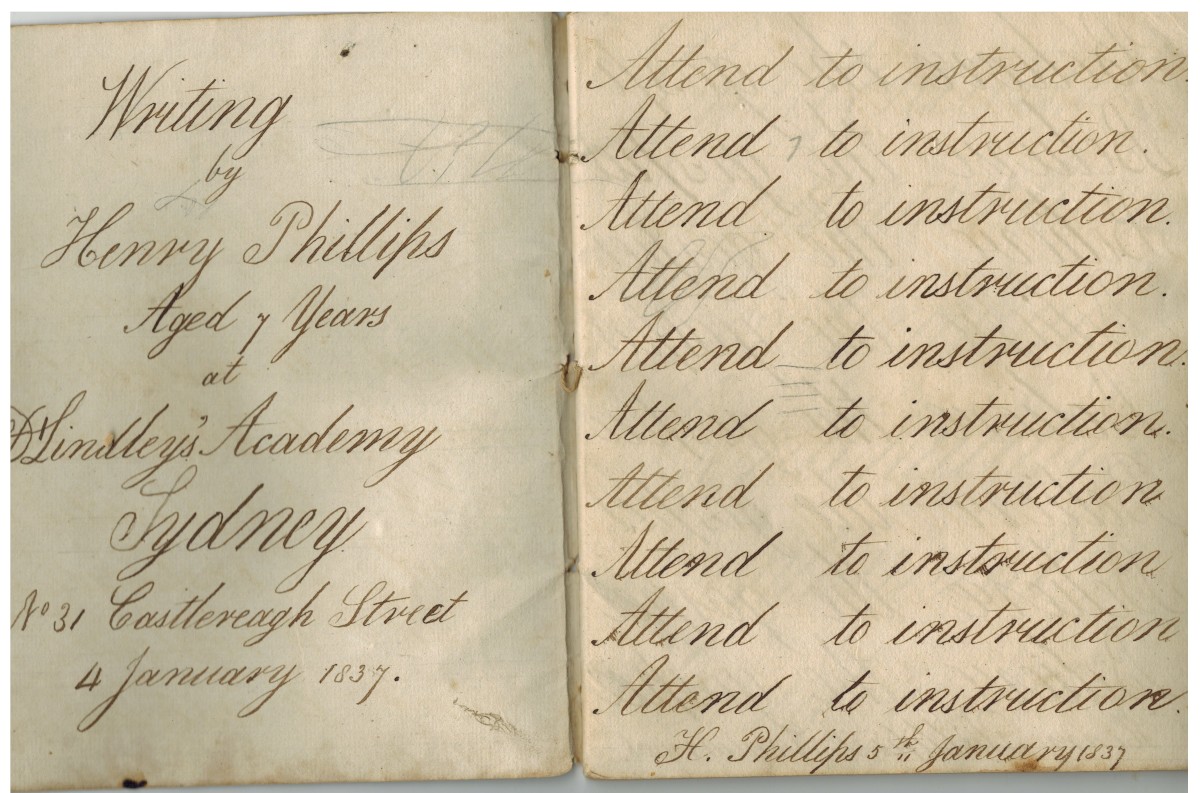 Writing
by
Henry Phillips
Aged 7 Years
at
D Lindley's Academy
Sydney
No 31 Castlereagh Street
4 January 1837.
Attend to instruction.
Attend to instruction.
Attend to instruction.
Attend to instruction.
Attend to instruction.
Attend to instruction.
Attend to instruction
Attend to instruction
Attend to instruction
Attend to instruction.
H. Phillips 5th January 1837